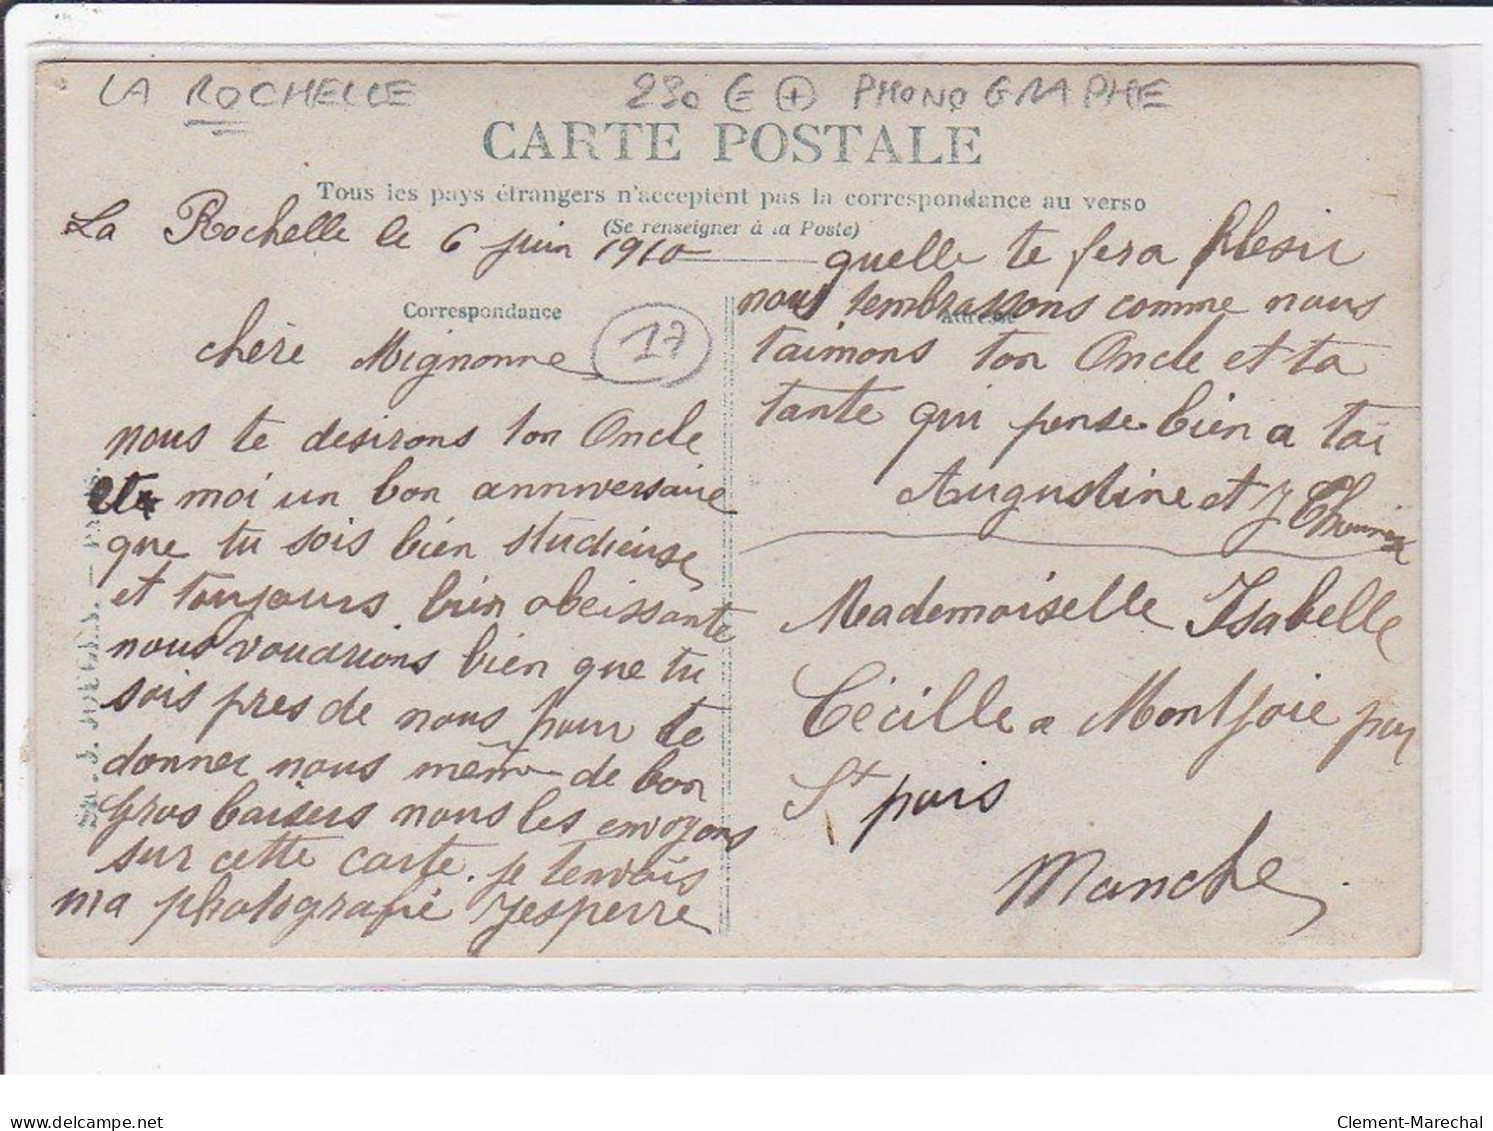 LA ROCHELLE 230 € + PHONOGRAPHE
CARTE POSTALE
Tous les pays étrangers n'acceptent pas la correspondance au verso
(Se renseigner à la Poste)
La Rochelle le 6 juin 1910
Correspondance
17
chère Mignonne
nous te desirons ton Oncle
et moi un bon anniversaire
que tu sois bien studieuse
et toujours bien obeissante
nous voudrions bien que tu
sois pres de nous pour te
donner nous même de bon
gros baisers nous les envoyons
sur cette carte. je tenvois
ma photografie jesperre
quelle te fera plesir
nous tembrassons comme nous
Adresse
taimons ton Oncle et ta
tante qui pense bien a toi
Augustine et J
Mademoiselle Isabelle
Cécille a Montjoie par
St pois
Manche
delcampe.net
Clement-Marechal